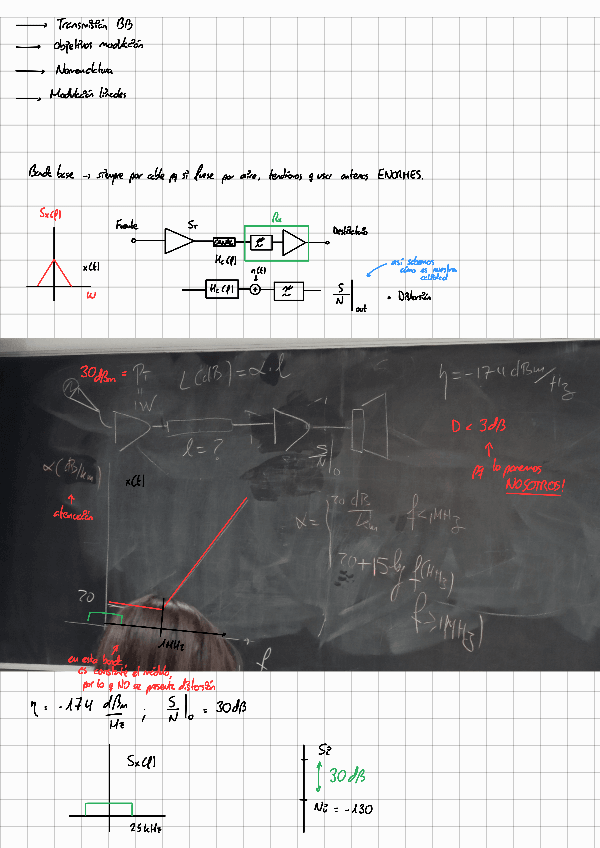 → Transmisión BB
→ Objetivos modulación
→ Nomenclatura
→ Modulación lineales
Banda base → siempre por cable pq si fuese por aire, tendríamos q usar antenas ENORMES.
Sx(f)
x(t)
W
Fuente
S_T
Hc(f)
Rx
Destinatario
así sabemos cómo es nuestra calidad
Hc(f)
n(t)
+
S/N | out
• Distorsión
30 dBm = P_T
1W
L(dB) = α·l
η = -174 dBm/Hz
l = ?
S/N)o
D < 3dB
pq lo ponemos
NOSOTROS!
α (dB/km)
atenuación
x(t)
α = { 20 dB/km f < 1MHz
20 + 15 log f(MHz)
f ≥ 1MHz)
20
1MHz
f
en esta banda
es constante el módulo,
por lo q NO se presenta distorsión
η = -174 dBm/Hz ; S/N |o = 30 dB
Sx(f)
25kHz
30 dB
= -130